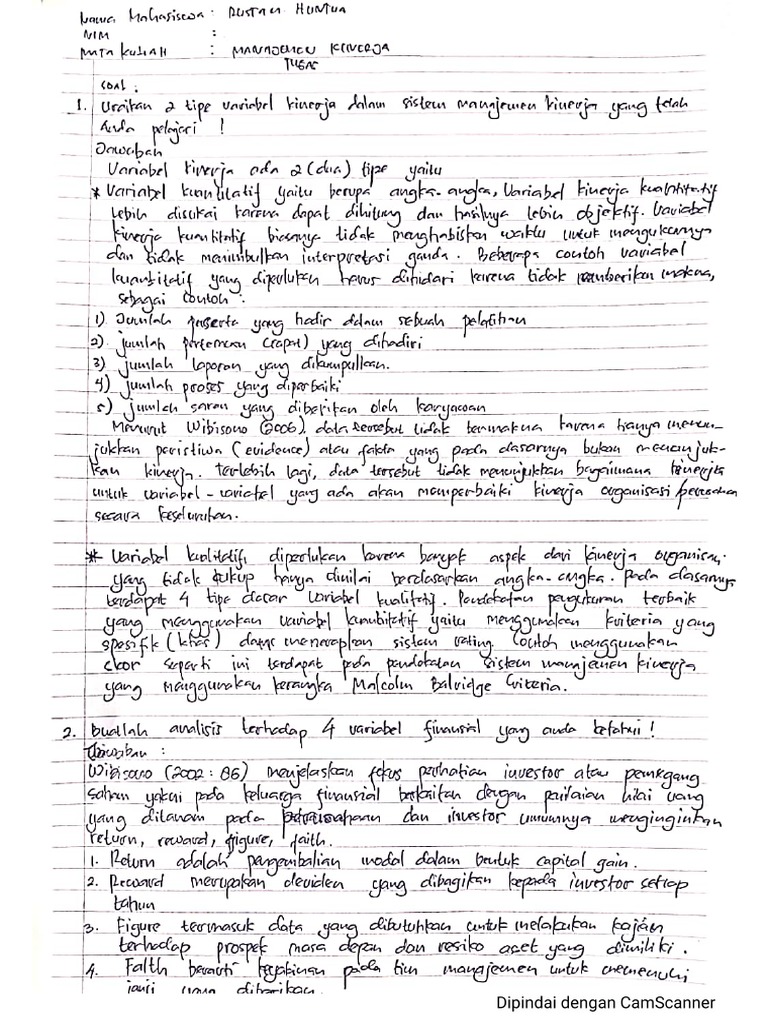 Nama Mahasiswa : Rustam Huntua
NIM :
Mata Kuliah : Manajemen Kinerja
Tugas
Soal :
1. Uraikan 2 tipe variabel kinerja dalam sistem manajemen kinerja yang telah
Anda pelajari !
Jawaban
Variabel kinerja ada 2 (dua) tipe yaitu
* Variabel kuantitatif yaitu berupa angka-angka, Variabel kinerja kuantitatif
lebih disukai karena dapat dihitung dan hasilnya lebih objektif. Variabel
kinerja kuantitatif biasnya tidak menghabiskan waktu untuk mengukurnya
dan tidak menimbulkan interpretasi ganda. Beberapa contoh variabel
kuantitatif yang diperlukan harus dihidari karena tidak memberikan makna,
sebagai contoh :
1) Jumlah peserta yang hadir dalam sebuah pelatihan
2) jumlah pertemuan (rapat) yang dihadiri
3) jumlah laporan yang dikumpulkan.
4) jumlah proses yang diperbaiki
5) jumlah saran yang diberikan oleh karyawan
Menurut Wibisono (2006), data tersebut tidak bermakna karena hanya menun-
jukkan peristiwa (evidence) atau fakta yang pada dasarnya bukan menunjuk-
kan kinerja. terlebih lagi, data tersebut tidak menunjukkan bagaimana kinerja
untuk variabel-variabel yang ada akan memperbaiki kinerja organisasi
secara keseluruhan.
* Variabel kualitatif, diperlukan karena banyak aspek dari kinerja organisasi
yang tidak cukup hanya dinilai berdasarkan angka-angka. pada dasarnya
terdapat 4 tipe dasar variabel kualitatif. Pendekatan pengukuran terbaik
yang menggunakan variabel kuantitatif yaitu menggunakan kriteria yang
spesifik (khas) dan menerapkan sistem rating. Contoh menggunakan
skor seperti ini terdapat pada pendekatan sistem manajemen kinerja
yang menggunakan kerangka Malcolm Balridge Criteria.
2. Buatlah analisis terhadap 4 variabel finansial yang anda ketahui !
Jawaban :
Wibisono (2002 : 86) menjelaskan fokus perhatian investor atau pemegang
saham yakni pada keluarga finansial berkaitan dengan penilaian nilai uang
yang ditanam pada perusahaan dan investor umumnya menginginkan
return, reward, figure, faith.
1. Return adalah pengembalian modal dalam bentuk capital gain.
2. Reward merupakan deviden yang dibagikan kepada investor setiap
tahun
3. Figure termasuk data yang dibutuhkan untuk melakukan kajian
terhadap prospek masa depan dan resiko aset yang dimiliki.
4. Faith berarti keyakinan pada tim manajemen untuk memenuhi
janji yang diberikan.
Dipindai dengan CamScanner